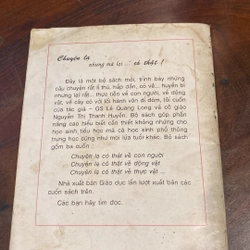 Chuyện lạ
nhưng mà lại ... có thật !
Đây là một bộ sách mới, trình bày những
câu chuyện rất lí thú, hấp dẫn, có vẻ... huyền bí
nhưng lại rất... thực tế về con người, về động
vật, về cây cỏ với lối hành văn dí dỏm, lôi cuốn
của tác giả - GS Lê Quang Long và cô giáo
Nguyễn Thị Thanh Huyền. Bộ sách góp phần
nâng cao hiểu biết cần thiết không những cho
học sinh tiểu học mà cả học sinh phổ thông
trung học cũng như mọi lứa tuổi khác. Bộ sách
gồm ba cuốn :
Chuyện lạ có thật về con người
Chuyện lạ có thật về động vật
Chuyện lạ có thật về thực vật ...
Nhà xuất bản Giáo dục lần lượt xuất bản các
cuốn sách trên.
Các bạn hãy tìm đọc.